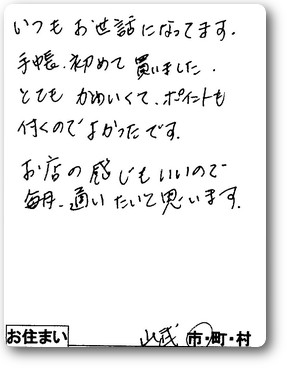 いつもお世話になってます.
手帳、初めて買いました.
とてもかわいくて、ポイントも
付くのでよかったです.
お店の感じもいいので
毎月、通いたいと思います.
お住まい 山武 市・町・村